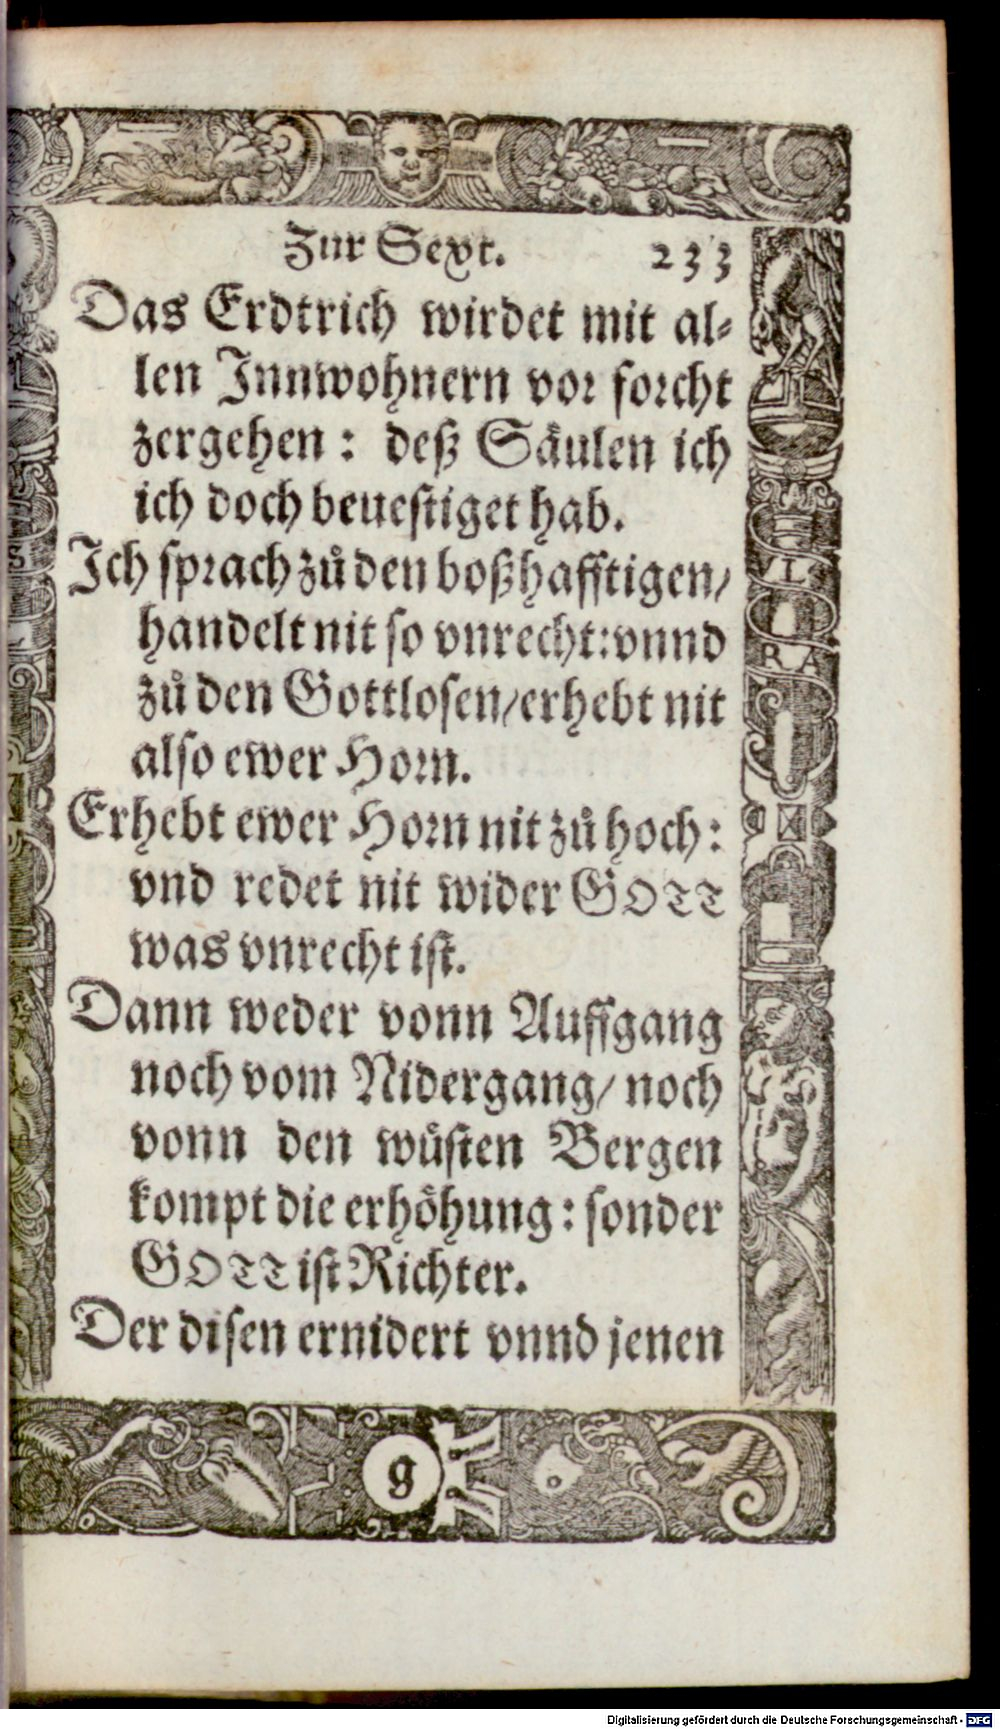 Zur Sext. 233
Das Erdtrich wirdet mit al-
len Innwohnern vor forcht
zergehen: deß Säulen ich
ich doch beuestiget hab.
Ich sprach zů den boßhafftigen/
handelt nit so vnrecht: vnnd
zů den Gottlosen/erhebt nit
also ewer Horn.
Erhebt ewer Horn nit zů hoch:
vnd redet nit wider GOTT
was vnrecht ist.
Dann weder vonn Auffgang
noch vom Nidergang/ noch
vonn den wüsten Bergen
kompt die erhöhung: sonder
GOTT ist Richter.
Der disen ernidert vnnd jenen
g
Digitalisierung gefördert durch die Deutsche Forschungsgemeinschaft - DFG